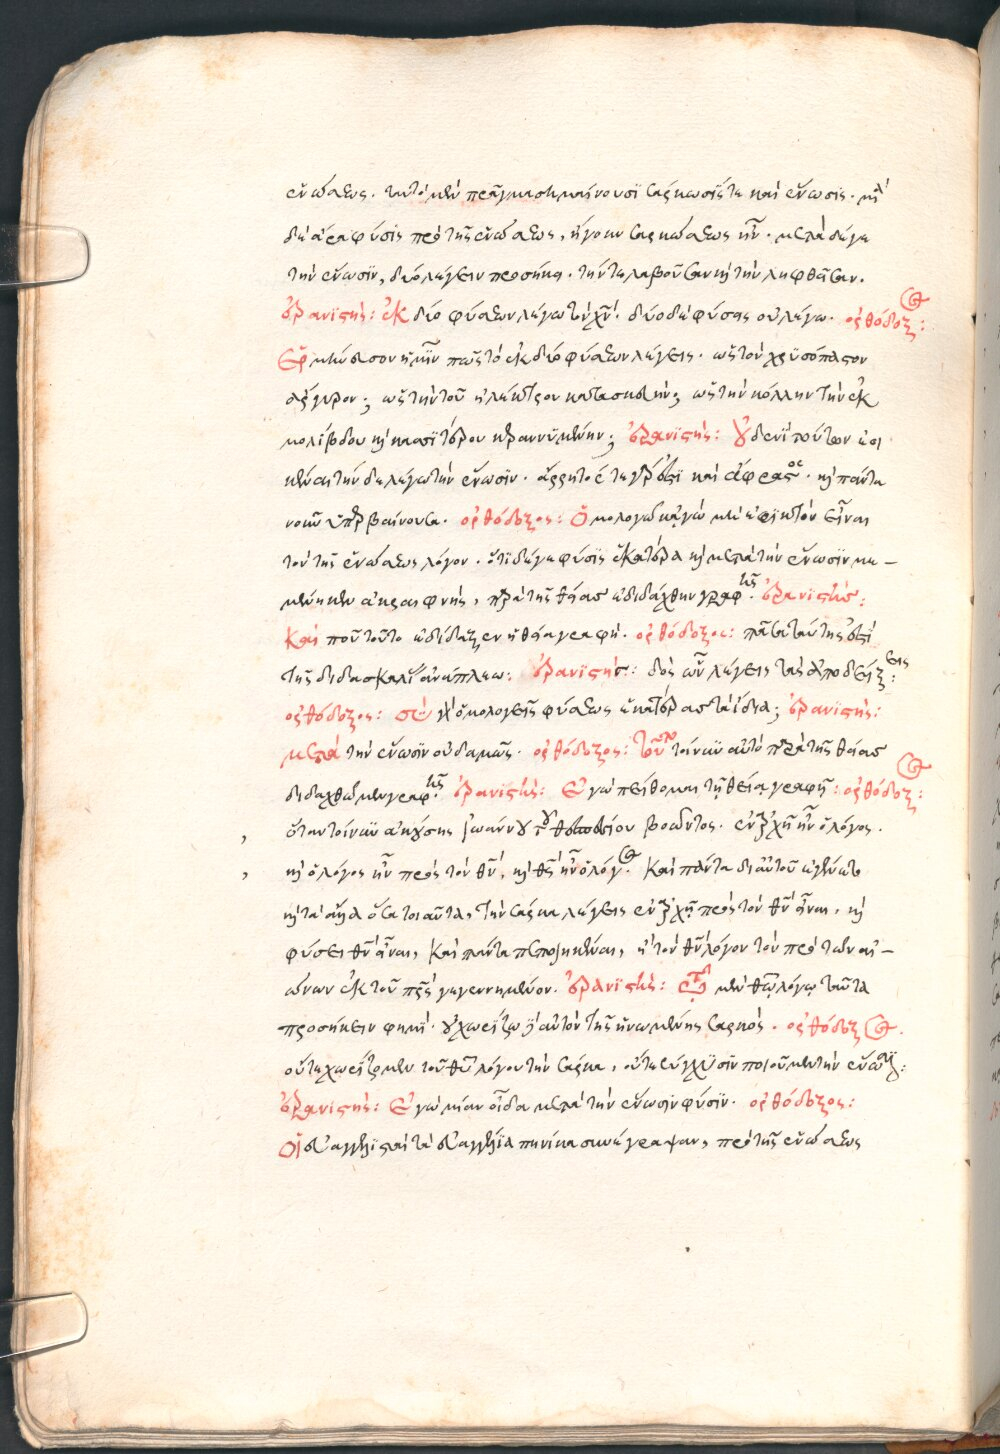 ἑνώσεως. ταυτὸ μὲν πρᾶγμα σημαίνουσι σάρκωσίς τε καὶ ἕνωσις. μία
δὲ ἄρα φύσις πρὸ τῆς ἑνώσεως, ἤγουν σαρκώσεως ἦν. μετὰ δέ γε
τὴν ἕνωσιν, δύο λέγειν προσήκει. τήν τε λαβοῦσαν κ(αὶ) τὴν ληφθεῖσαν.
ἐρανιστής: ἐκ δύο φύσεων λέγω τὸν χν. δύο δὲ φύσεις οὐ λέγω. ορθόδοξος:
Ἑρμήνευσον ἡμῖν πῶς τὸ ἐκ δύο φύσεων λέγεις. ὡς τὸν χρυσόπαστον
ἄργυρον; ὡς τὴν τοῦ ἠλέκτρου κατασκευήν; ὡς τὴν κόλλην τὴν ἐκ
μολίβδου κ(αὶ) κασιτέρου κεραννυμένην; ἐρανιστής: Οὐδενὶ τούτων ἐοι
κέναι τήνδε λέγω τὴν ἕνωσιν. ἄρρητός τε γάρ ἐστι καὶ ἄφραστος. κ(αὶ) πάντα
νοῦν ὑπερβαίνουσα. ορθόδοξος: Ὁμολογῶ κἀγὼ μὴ ἐφικτὸν εἶναι
τὸν τῆς ἑνώσεως λόγον. ὅτι δέ γε φύσις ἑκατέρα κ(αὶ) μετὰ τὴν ἕνωσιν με–
μένηκεν ἀκραιφνής, παρὰ τῆς θείας ἐδιδάχθην γραφῆς. ἐρανιστής:
Καὶ ποῦ τοῦτο ἐδίδαξεν ἡ θεία γραφή. ορθόδοξος: πᾶσα ταύτης ἐστὶ
τῆς διδασκαλίας ἀνάπλεω: ἐρανιστής: δὸς ὧν λέγεις τὰς ἀποδείξεις:
ορθόδοξος: σὺ γὰρ ὁμολογεῖς φύσεως ἑκατέρας τὰ ἴδια; ἐρανιστής:
μετὰ τὴν ἕνωσιν οὐδαμῶς. ορθόδοξος: Τοῦτο τοίνυν αὐτὸ παρὰ τῆς θείας
διδαχθῶμεν γραφῆς. ἐρανιστής: Ἐγὼ πείθομαι τῇ θείᾳ γραφῇ: ορθόδοξος:
ὅταν τοίνυν ἀκούσης ἰωάννου τοῦ θεσπεσίου βοῶντος. ἐν ἀρχῇ ἦν ὁ λόγος.
κ(αὶ) ὁ λόγος ἦν πρὸς τὸν θν, κ(αὶ) θς ἦν ὁ λόγος. Καὶ πάντα δι αὐτοῦ ἐγένετο
κ(αὶ) τὰ ἄλλα ὅσα τοιαῦτα, τὴν σάρκα λέγεις ἐν ἀρχῇ πρὸς τὸν θν εἶναι, κ(αὶ)
φύσει θν εἶναι, Καὶ πάντα πεποιηκέναι, ἢ τὸν θν λόγον τὸν πρὸ τῶν αἰ–
ώνων ἐκ τοῦ πρς γεγεννημένον. ἐρανιστής: Τῷ μὲν θῶ λόγῳ ταῦτα
προσήκειν φημί. οὐ χωρίζω δὲ αὐτὸν τῆς ἡνωμένης σαρκός. ορθόδοξος.
οὔτε χωρίζομεν τοῦ θῦ λόγου τὴν σάρκα, οὔτε σύγχυσιν ποιοῦμεν τὴν ἕνωσιν:
ἐρανιστής: Ἐγὼ μίαν οἶδα μετὰ τὴν ἕνωσιν φύσιν. ορθόδοξος:
Οἱ εὐαγγελισταὶ τὰ εὐαγγέλια πηνίκα συνέγραψαν, πρὸ τῆς ἑνώσεως